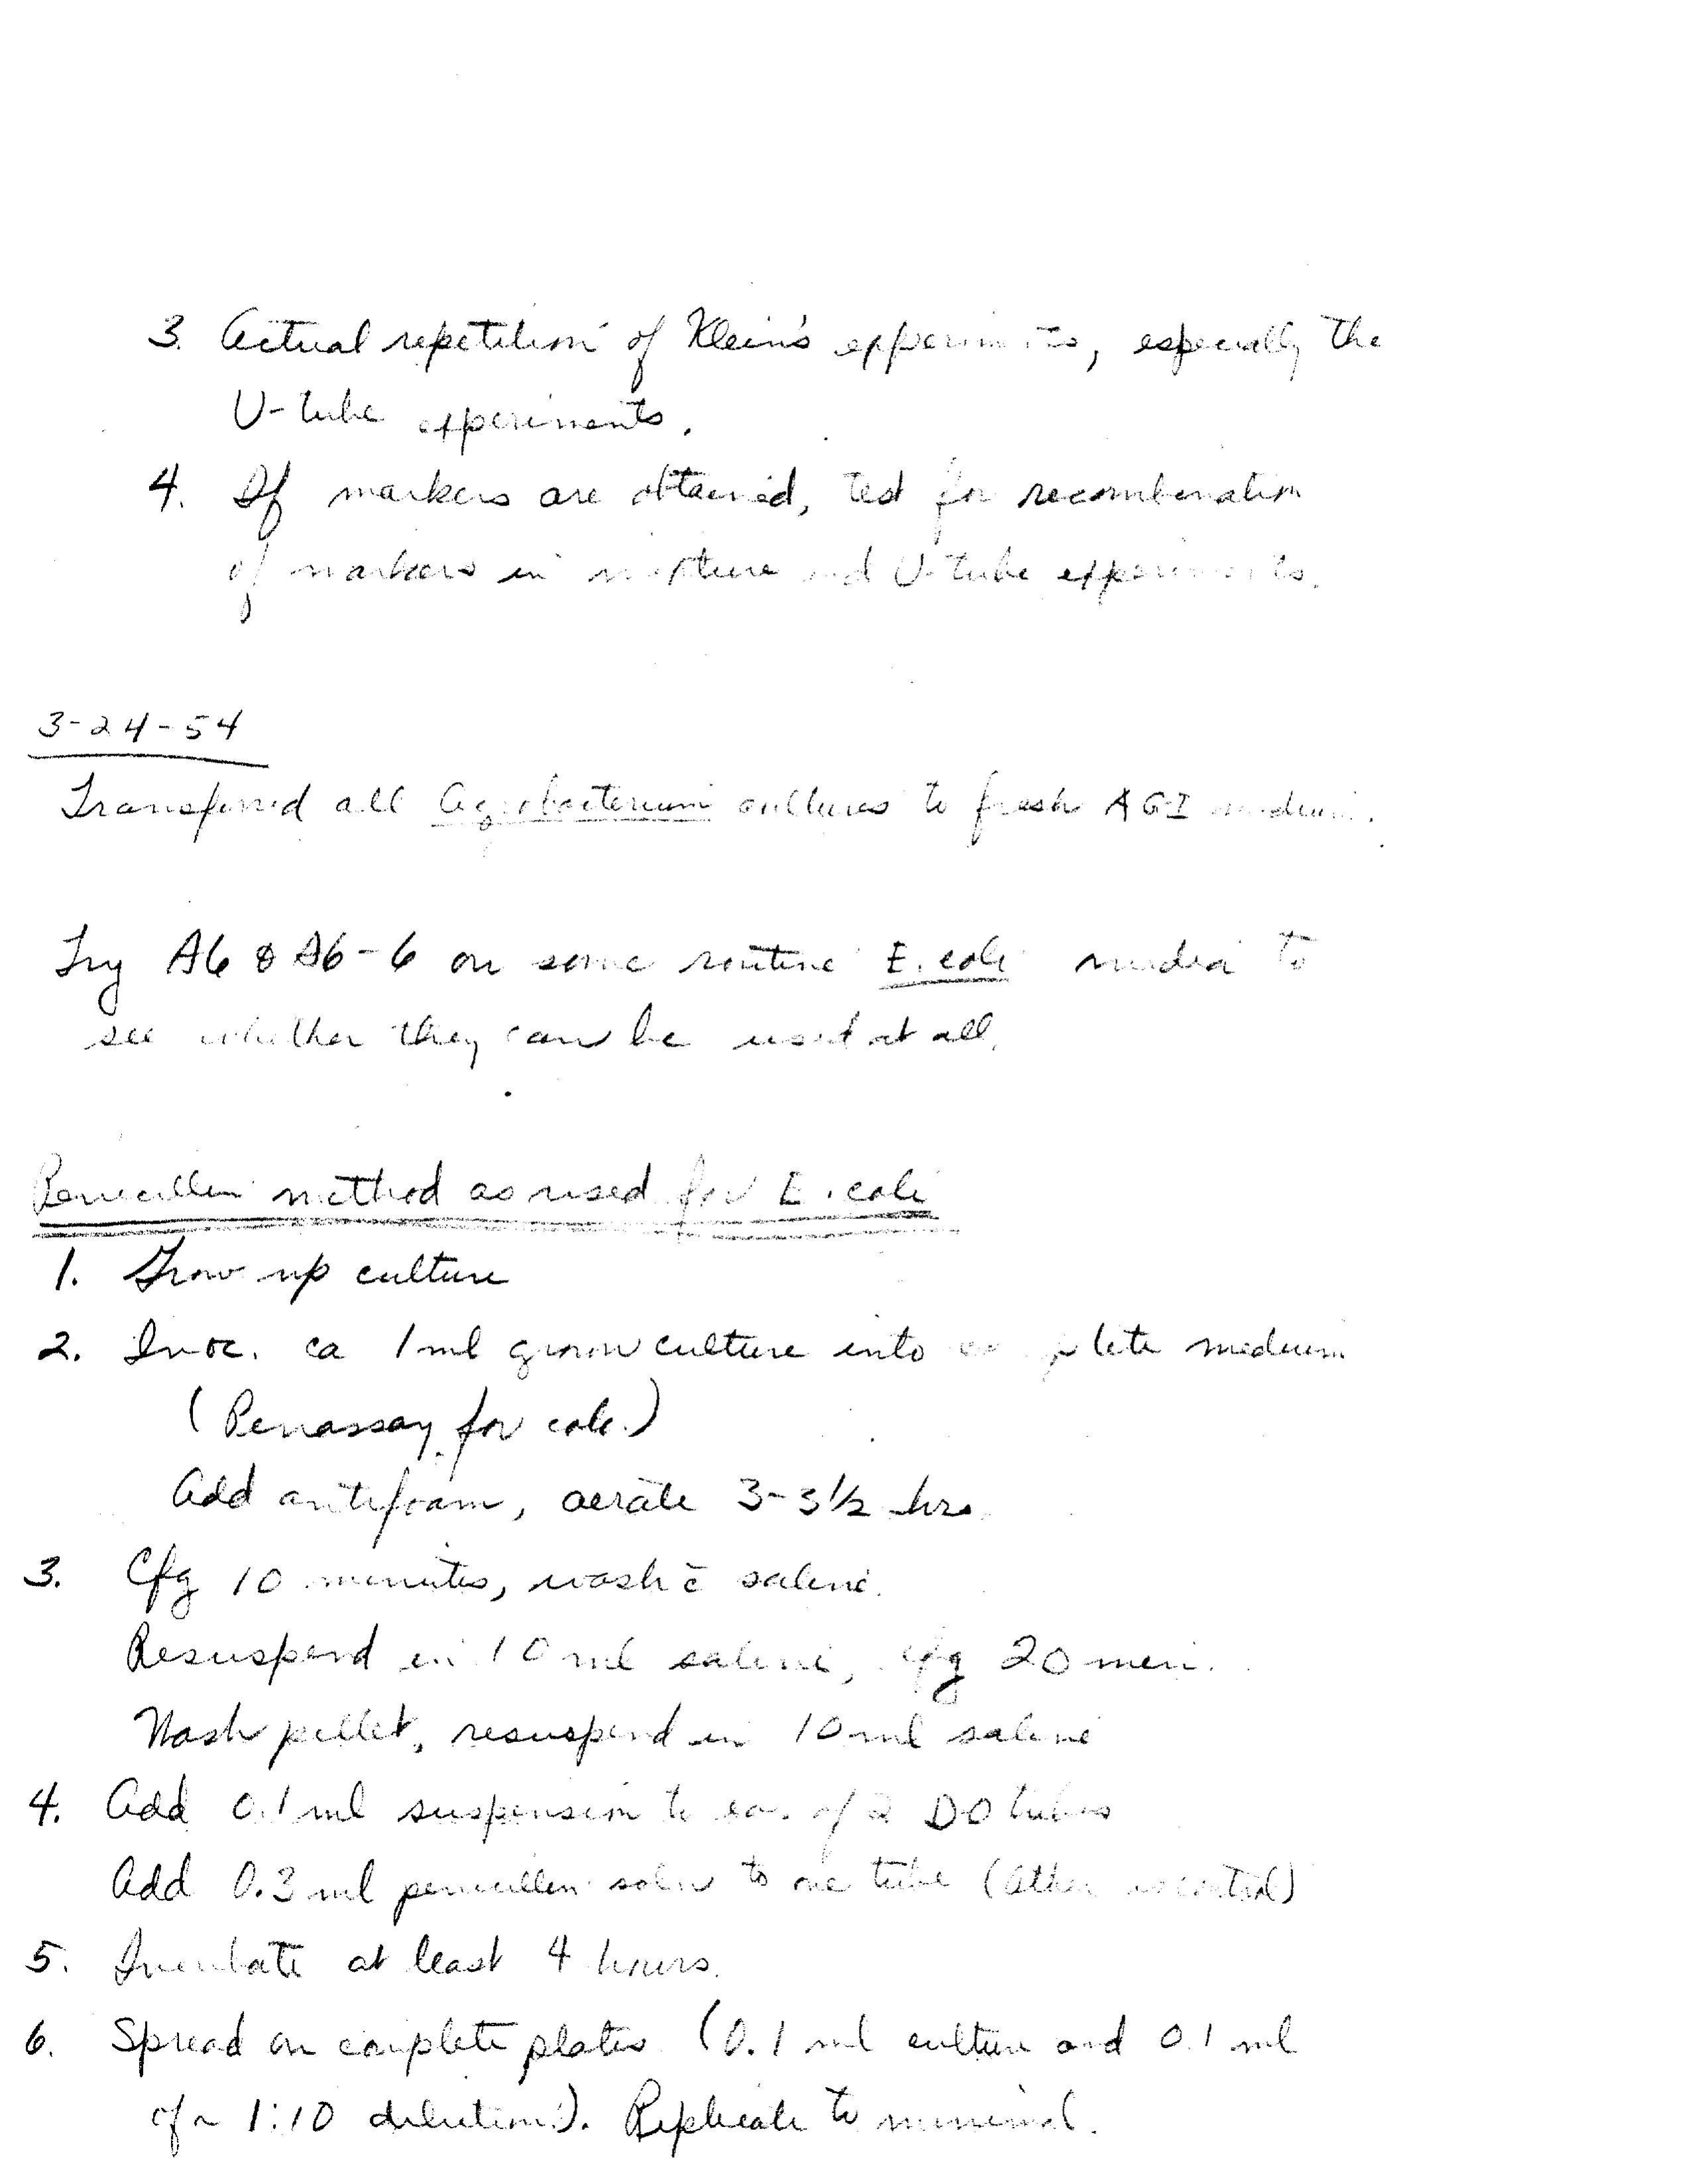 3. Actual repetition of Klein's experiments, especially the
U-tube experiments.
4. If markers are obtained, test for recombination
of markers in mixture and U-tube experiments.
3-24-54
Transferred all Agrobacterium cultures to fresh AGI medium.
Try A6 & A6-6 on some routine E. coli media to
see whether they can be used at all.
Penicillin method as used for E. coli
1. Grow up culture
2. Inoc. ca 1 ml grown culture into complete medium
(Penassay for coli)
Add antifoam, aerate 3-3½ hrs.
3. Cfg 10 minutes, wash c̄ saline.
Resuspend in 10 ml saline, cfg 20 min.
Wash pellet, resuspend in 10 ml saline
4. Add 0.1 ml suspension to ea. of 2 DO tubes
Add 0.3 ml penicillin soln to one tube (Other is control)
5. Incubate at least 4 hours.
6. Spread on complete plates (0.1 ml culture and 0.1 ml
of a 1:10 dilution). Replicate to minimal.